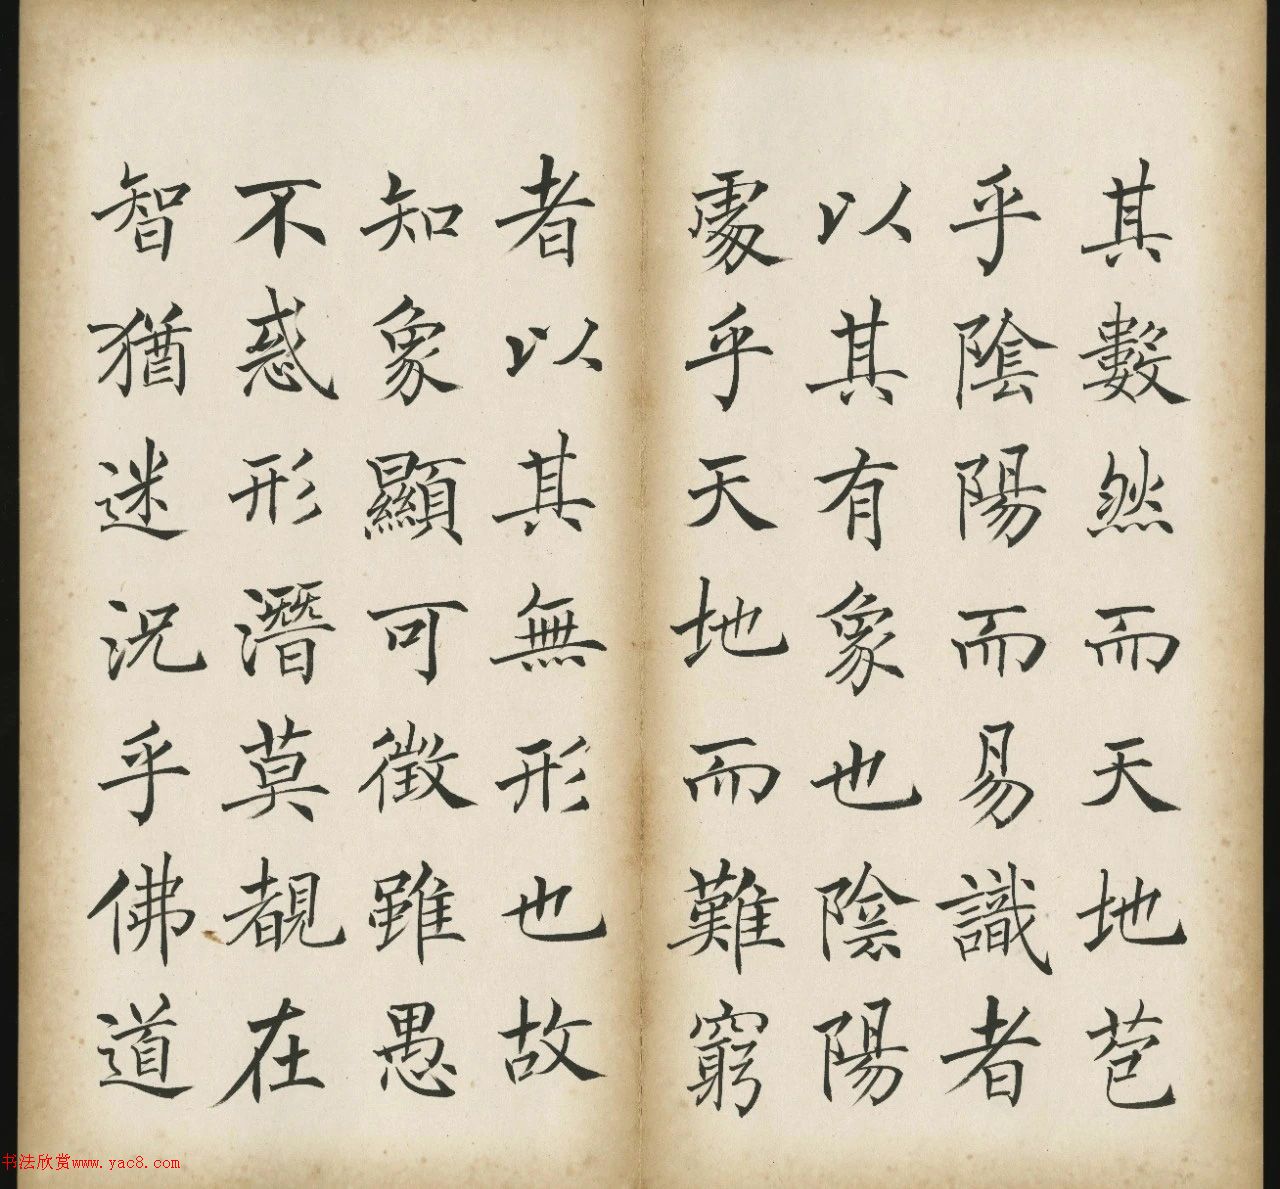 其數然而天地苞
乎陰陽而易識者
以其有象也陰陽
處乎天地而難窮
者以其無形也故
知象顯可徵雖愚
不惑形潛莫覩在
智猶迷況乎佛道
书法欣赏www.yac8.com